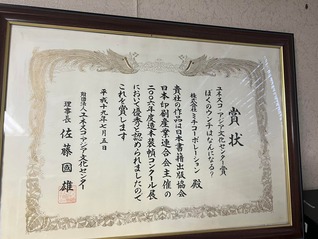 賞状
ユネスコ・アジア文化センター賞
ぼくのウンチはなんになる？
株式会社ミチコーポレーション 殿
貴社の作品は日本書籍出版協会
日本印刷産業連合会主催の
二〇〇六年度造本装幀コンクール展
において優秀と認められましたので
これを賞します
平成十九年七月五日
財団法人ユネスコ・アジア文化センター
理事長 佐藤國雄